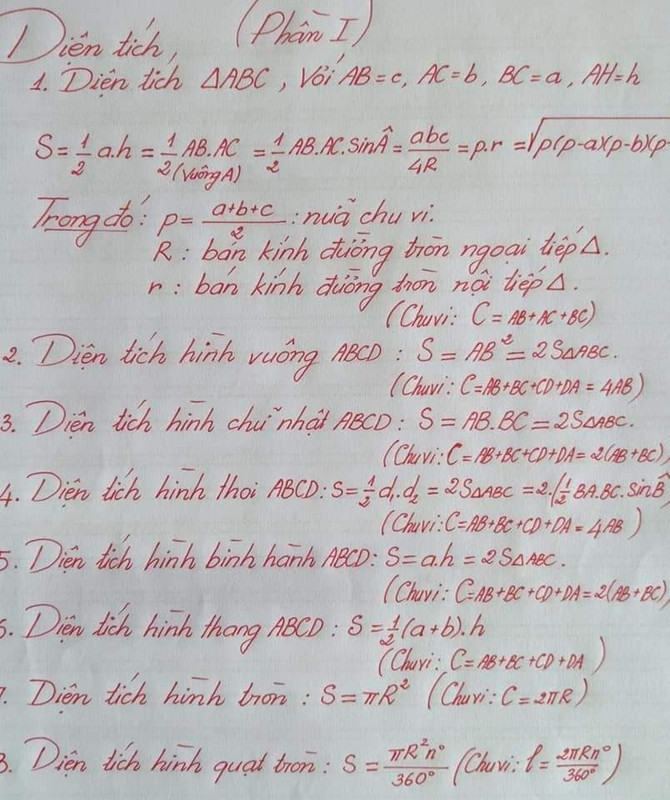 Diện tích, (Phần I)
1. Diện tích ΔABC, Với AB=c, AC=b, BC=a, AH=h
S = 1/2 a.h = 1/2 AB.AC (Vuông A) = 1/2 AB.AC.SinÂ = abc/4R = p.r = √p(p-a)(p-b)(p-
Trong đó: p = a+b+c/2 : nửa chu vi.
R : bán kính đường tròn ngoại tiếp Δ.
r : bán kính đường tròn nội tiếp Δ.
(Chu vi: C = AB+AC+BC)
2. Diện tích hình vuông ABCD : S = AB² = 2SΔABC.
(Chu vi: C=AB+BC+CD+DA = 4AB)
3. Diện tích hình chữ nhật ABCD : S = AB.BC = 2SΔABC.
(Chu vi: C=AB+BC+CD+DA=2(AB+BC)
4. Diện tích hình thoi ABCD: S=1/2 d₁.d₂ = 2SΔABC = 2.(1/2 BA.BC.SinB̂
(Chu vi: C=AB+BC+CD+DA = 4AB)
5. Diện tích hình bình hành ABCD: S = a.h = 2SΔABC.
(Chu vi: C=AB+BC+CD+DA=2(AB+BC)
6. Diện tích hình thang ABCD : S = 1/2 (a+b).h
(Chu vi: C=AB+BC+CD+DA)
7. Diện tích hình tròn : S = πR² (Chu vi: C = 2πR)
8. Diện tích hình quạt tròn: S = πR²n°/360° (Chu vi: l = 2πRn°/360°)